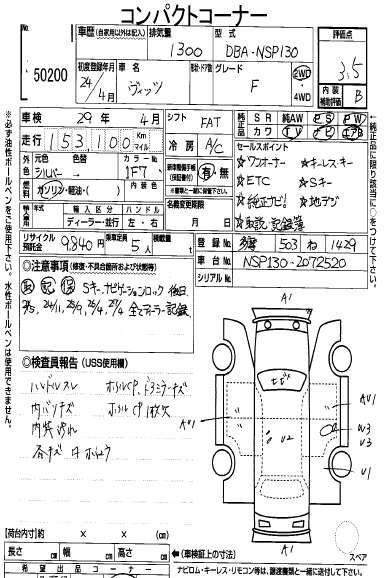 コンパクトコーナー
50200
車歴 (自家用以外は記入)
排気量
1300
型式
DBA-NSP130
評価点
3.5
初度登録年月
24年
4月
車名
ヴィッツ
ドア・形状
グレード
F
2WD
4WD
内装
補助評価
B
車検 29年 4月
走行 153,100 Km マイル
シフト FAT
冷房 A/C
純正品 SR 純AW PS PW
カワ TV ナビ エアB
外装 元色 シルバー
色替
カラーNo. 1F7
内装色
燃料 ガソリン・軽油・( )
輸入車 輸入区分 ディーラー・並行
ハンドル 左・右
名義変更期限 月 日
有・無
セールスポイント
☆ワンオーナー ☆キーレスキー
☆ETC ☆Sキー
☆純正ナビ! ☆地デジ
☆取説 記録簿
リサイクル預託金 9840円
乗車定員 5人
積載量 t
登録No. 503 ね 1429
車台No. NSP130-2072520
シリアルNo.
◎注意事項 (修復・不具合箇所および状態等)
取 記 保 Sキー ナビゲーションロック 後日
24/11, 25/9, 26/4, 27/4 全てディーラー記録
◎検査員報告 (USS使用欄)
ハンドルスレ
内バリキズ
内装汚れ
各キズ
A1
AU1
U2
W3
U3
U1
A1
スペア
【荷台内寸】 × ×
長さ cm 幅 cm 高さ cm
(車検証上の寸法)
希望出品コーナー
ナビロム・キーレス・リモコン等は、譲渡書類と一緒に送付して下さい。
※必ず油性ボールペンをご使用下さい。水性ボールペンは使用できません。
※純正品に限り該当に○をつけて下さい。